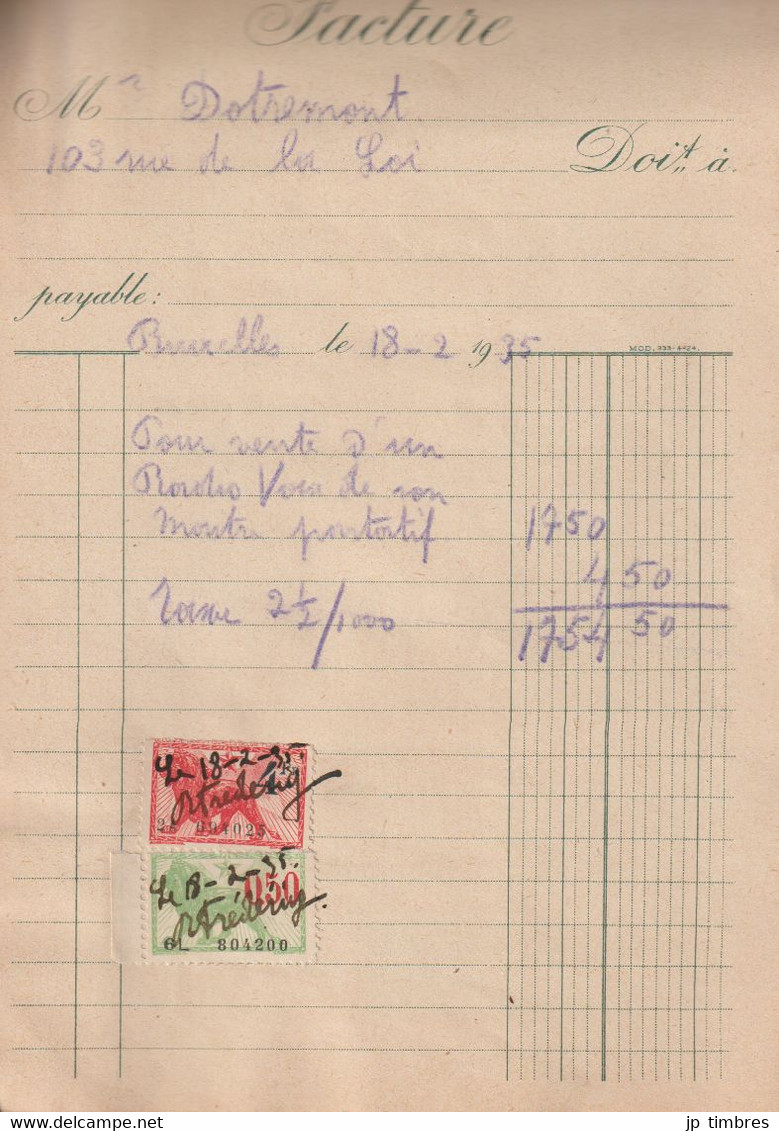 Facture
Mr Dotremont.
103 rue de la Loi Doit à
payable:
Bruxelles le 18-2 1935
MOD. 333-4424.
Pour vente d'un
Radio Voix de son
Maitre portatif 1750
4 50
Taxe 2 1/2 /1000 1754 50
Le 18-2-35.
094025
Le 18-2-35.
0,50
6L 804200
jp timbres